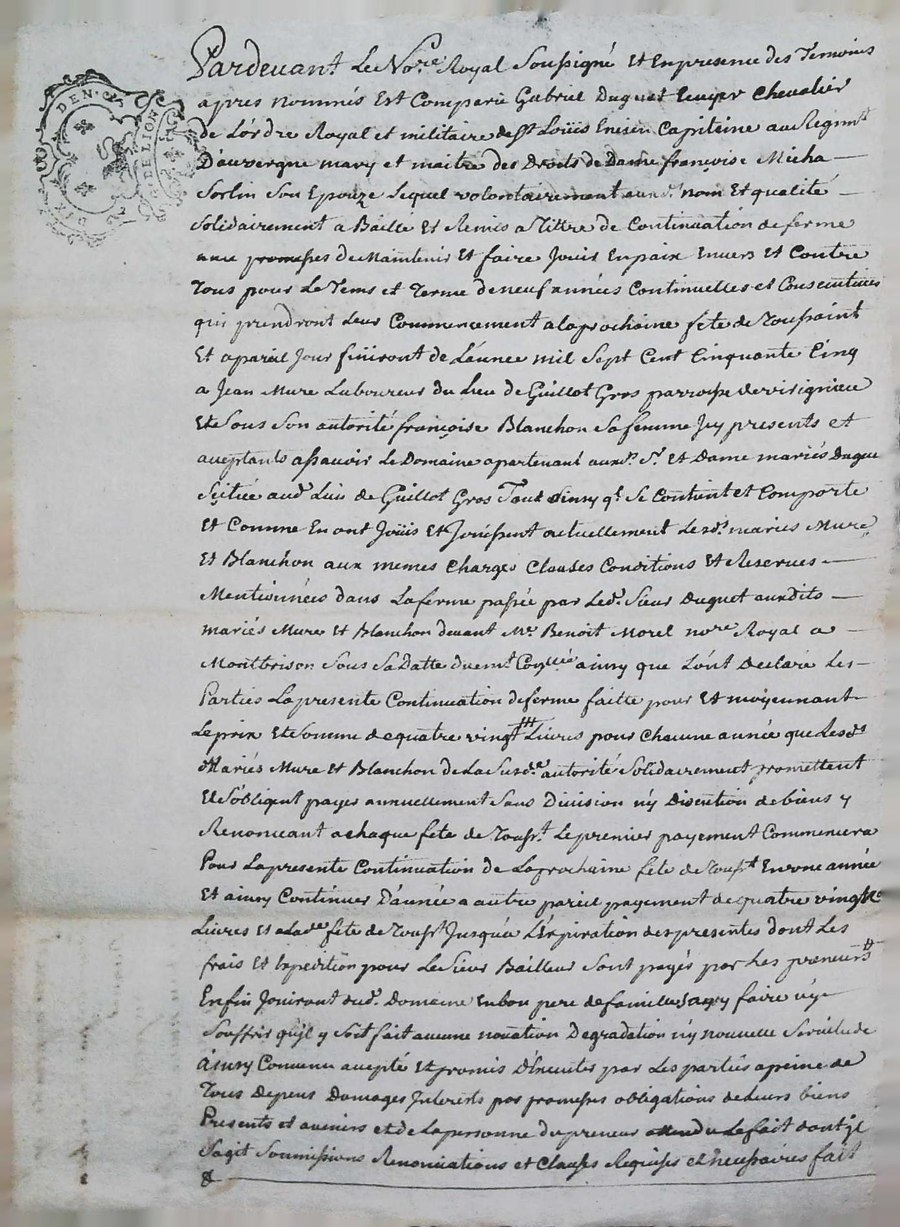 DEN. GEN. DE LION
DIX
Pardevant Le No.re Royal Soussigné Et Enpresence des Temoins
apres nommés Est Comparü Gabriel Duguet Ecuyer Chevalier
de L'ordre Royal et militaire de St Loüis Capitaine au Regmt
D'auvergne mary et maitre des Droits de Dame françoise Micha
Sorlin Son Epouze Lequel volontairement aux d. nom Et qualité
Solidairement a Baillé Et Remis a tittre de Continuation de ferme
avec promesses de Maintenir Et faire Joüir Enpaix Envers Et Contre
Tous pour Le Tems et Terme de neuf années Continuelles et Consecutives
qui prendront Leur Commencement a laprochaine fete de Toussaint
Et apareil Jour finiront de L'année mil Sept Cent Cinquante Cinq
a Jean Mure Laboureur du Lieu de Guillot Gros parroisse de verisignieu
Et Sous Son autorité françoise Blanchon Sa femme Jcy presents et
aceptants assavoir Le Domaine apartenant auxd. Sr. Et Dame mariés Dugue
Scitué aud. Lieu de Guillot Gros Tout ainsy q.l Se Contient et Comporte
Et Comme En ont Joüis Et Joüissent actuellement Lesd.s mariés Mure
Et Blanchon aux memes Charges Clauses Conditions Et Reserves
Mentionnées dans Laferme passée par Led. Sieur Duguet auxdits
mariés Mure Et Blanchon devant Me. Benoit Morel nore Royal a
Montbrison Sous Sa Datte ainsy que L'ont Declaré Les
Parties Lapresente Continuation de ferme faitte pour Et moyennant
Leprix Et Somme de quatre vingt Livres pour Chacune année que Lesd.s
Mariés Mure Et Blanchon de La Susd.e autorité Solidairement promettent
Et S'obligent payer annuellement Sans Division n'y Discution de biens y
Renonceant achaque fete de Touss.t Le premier payement Commencera
Pour Lapresente Continuation de Laprochaine fete de Touss.t En une année
Et ainsy Continuer D'année a autre pareil payement de quatre vingt
Livres Et a Lad.e fete de Touss.t Jusqu'a L'Expiration des presentes dont Les
frais Et Expedition pour Le Sieur Bailleur Sont payés par Les preneurs
Enfin Joüiront dud. Domaine En bon pere de famille Sans y faire n'y
Souffrir qu'il y Soit fait aucune novation Degradation n'y nouvelle Servitude
Ainsy Convenu accepté Et promis D'Executer par Les parties apeine de
Tous Depens Domages Interests par promesses obligations de Leurs biens
Presents et avenirs et de Lapersonne du preneur attendu Le fait dont il
Sagit Soumissions Renonciations et Clauses Requises et necessaires fait
&